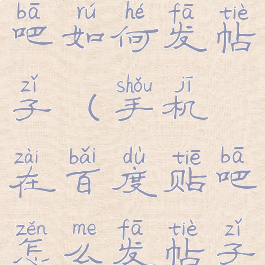 bā rú hé fā tiè
吧如何发帖
zǐ shǒu jī
子（手机
zài bǎi dù tiē bā
在百度贴吧
zěn me fā tiè zǐ
怎么发帖子